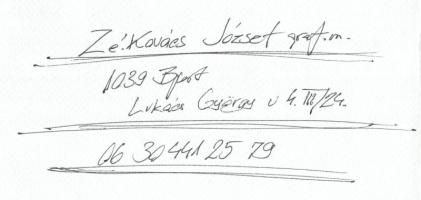 Zé. Kovács József graf.m.
1039 Bpest
Lukács György u 4. III/24.
06 30 441 25 79